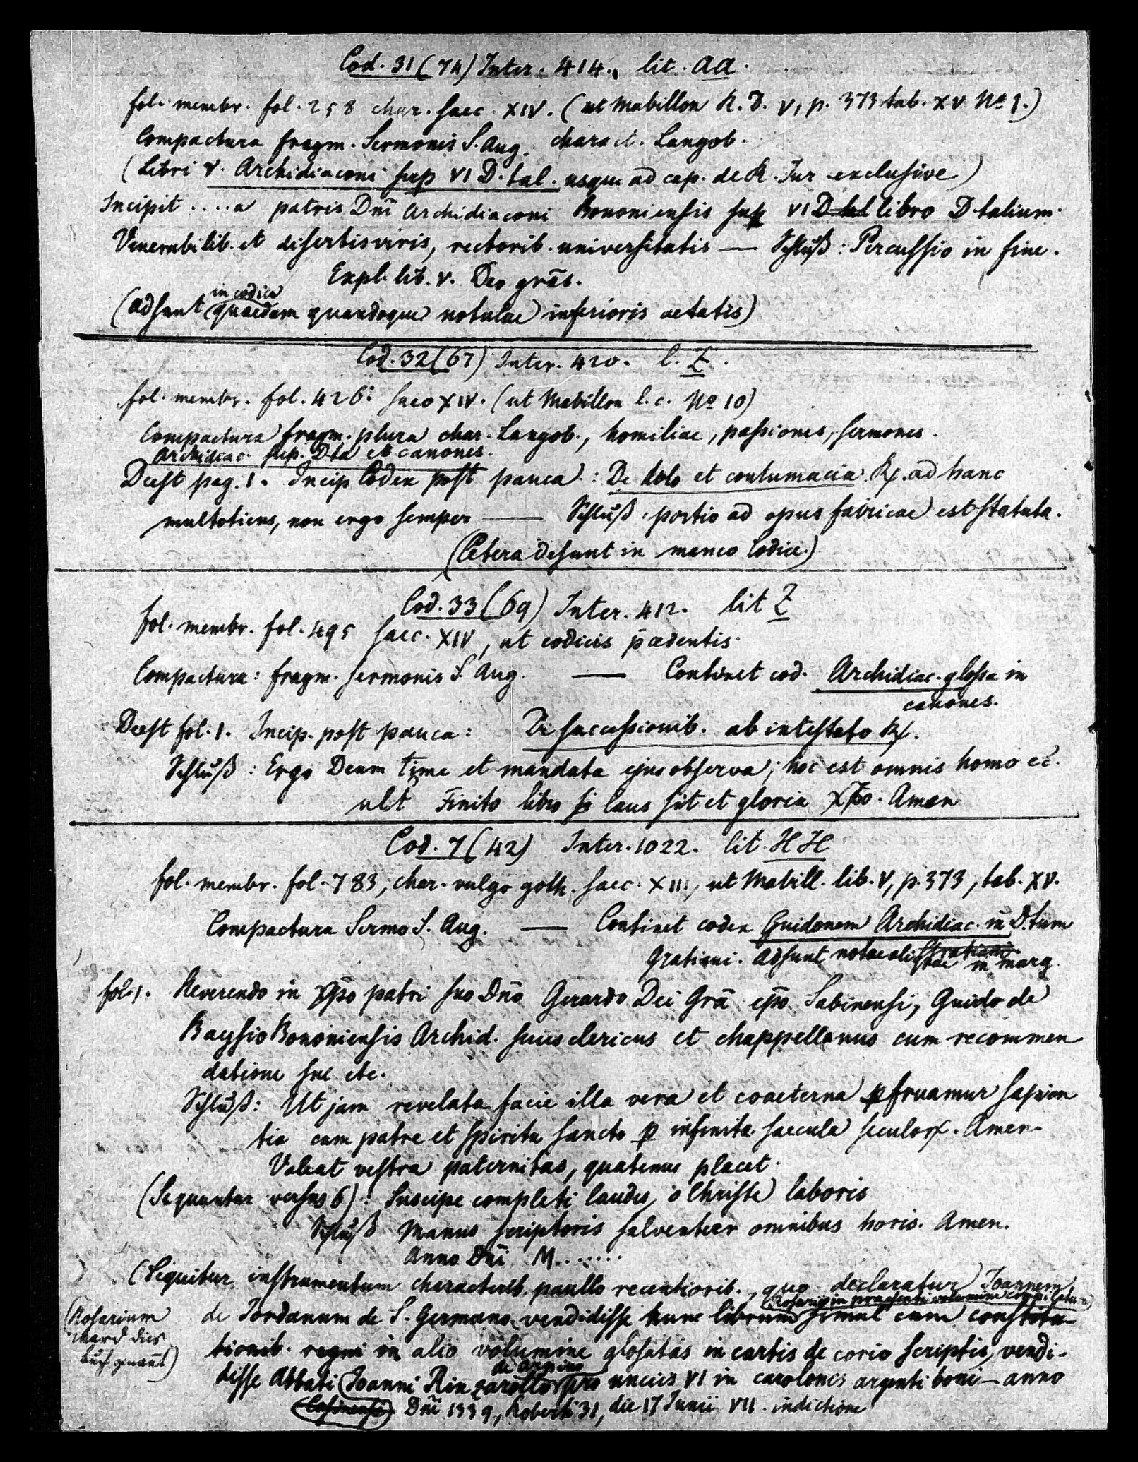 Cod. 31 (74) Inter. 414., lit. aa.
fol. membr. fol. 258 char. saec. XIV. (ut Mabillon R. D. V, p. 373 tab. XV. No 9.)
Compactura fragm. Sermonis S. Aug. charact. Langob.
(Libri V. Archidiaconi sup VI D. tal. usque ad cap. de R. Jur exclusive)
Incipit ....a patris Dni Archidiaconi Bononiensis sup VI libro Dtalium.
Venerabilib. et disertis viris, rectorib. universitatis — Schluß: Percussio in fine.
Expl. lib. V. Deo grās.
(adsunt in codice quaedam quandoque notulae inferioris aetatis)
Cod. 32 (67) Inter. 420. l. Z.
fol. membr. fol. 426: saeo XIV. (ut Mabillon l. c. No 10)
Compactura fragm. plura char. Langob., homiliae, passiones, sermones.
Archidiac. sup. Dta et canones.
Deest pag. 1. Incip Codex post pauca: De dolo et contumacia Rx. ad hanc
multotiens, non ergo semper — Schluß. portio ad opus fabricae est statuta.
(Cetera desunt in manco Codice.)
Cod. 33 (69) Inter. 412. lit Z
fol. membr. fol. 495 saec. XIV, ut codicis padentis.
Compactura: fragm. sermonis S. Aug. — Continet cod. Archidiac. glossa in
canones.
Deest fol. 1. Incip. post pauca: De successionib. ab intestato Rx.
Schluß: Ergo Deum time et mandata ejus observa; hoc est omnis homo et.
ult Finito libro sit laus sit et gloria Xpo. Amen
Cod. 7 (42) Inter. 1022. lit. HH
fol. membr. fol. 783, char. vulgo goth. saec. XIII, ut Mabill. lib. V, p. 373, tab. XV.
Compactura Sermo S. Aug. — Continet codex Guidonem Archidiac. in D.tum
Gratiani. Adsunt notae in marg.
fol. 1. Reverendo in Xpo patri suo Dno Gerardo Dei Grā epo. Sabinensi, Guido de
Baysio Bononiensis Archid. suus clericus et chappellanus cum recommen
datione sui etc.
Schluß: Ut jam revelata facie illa vera et coaeterna pfruamur sapien
tia cum patre et spiritu sancto p infinita saecula seculorx. Amen.
Valeat vestra paternitas, quatenus placet.
(Sequuntur versus 6): Suscipe completi laudes, o Christe laboris
Schluß Manus scriptoris salventur omnibus horis. Amen.
Anno Dni M.......
(Sequitur instrumentum characterib. paullo recentiorib., quo declaratur Joannem
(Rosarium in praesenti volumine
de Jordanum de S. Germano vendidisse hunc librum simul cum constitu-
(Rosarium
ward dies
buch genant)
tionib. regni in alio volumine glosatas in cartis de corio scriptis, vendi-
disse Abbati Joanni Rin pro uncies VI in carolenos argenti boni – anno
Dni 1339, Roberti 31, die 17 Junii VII. indictione